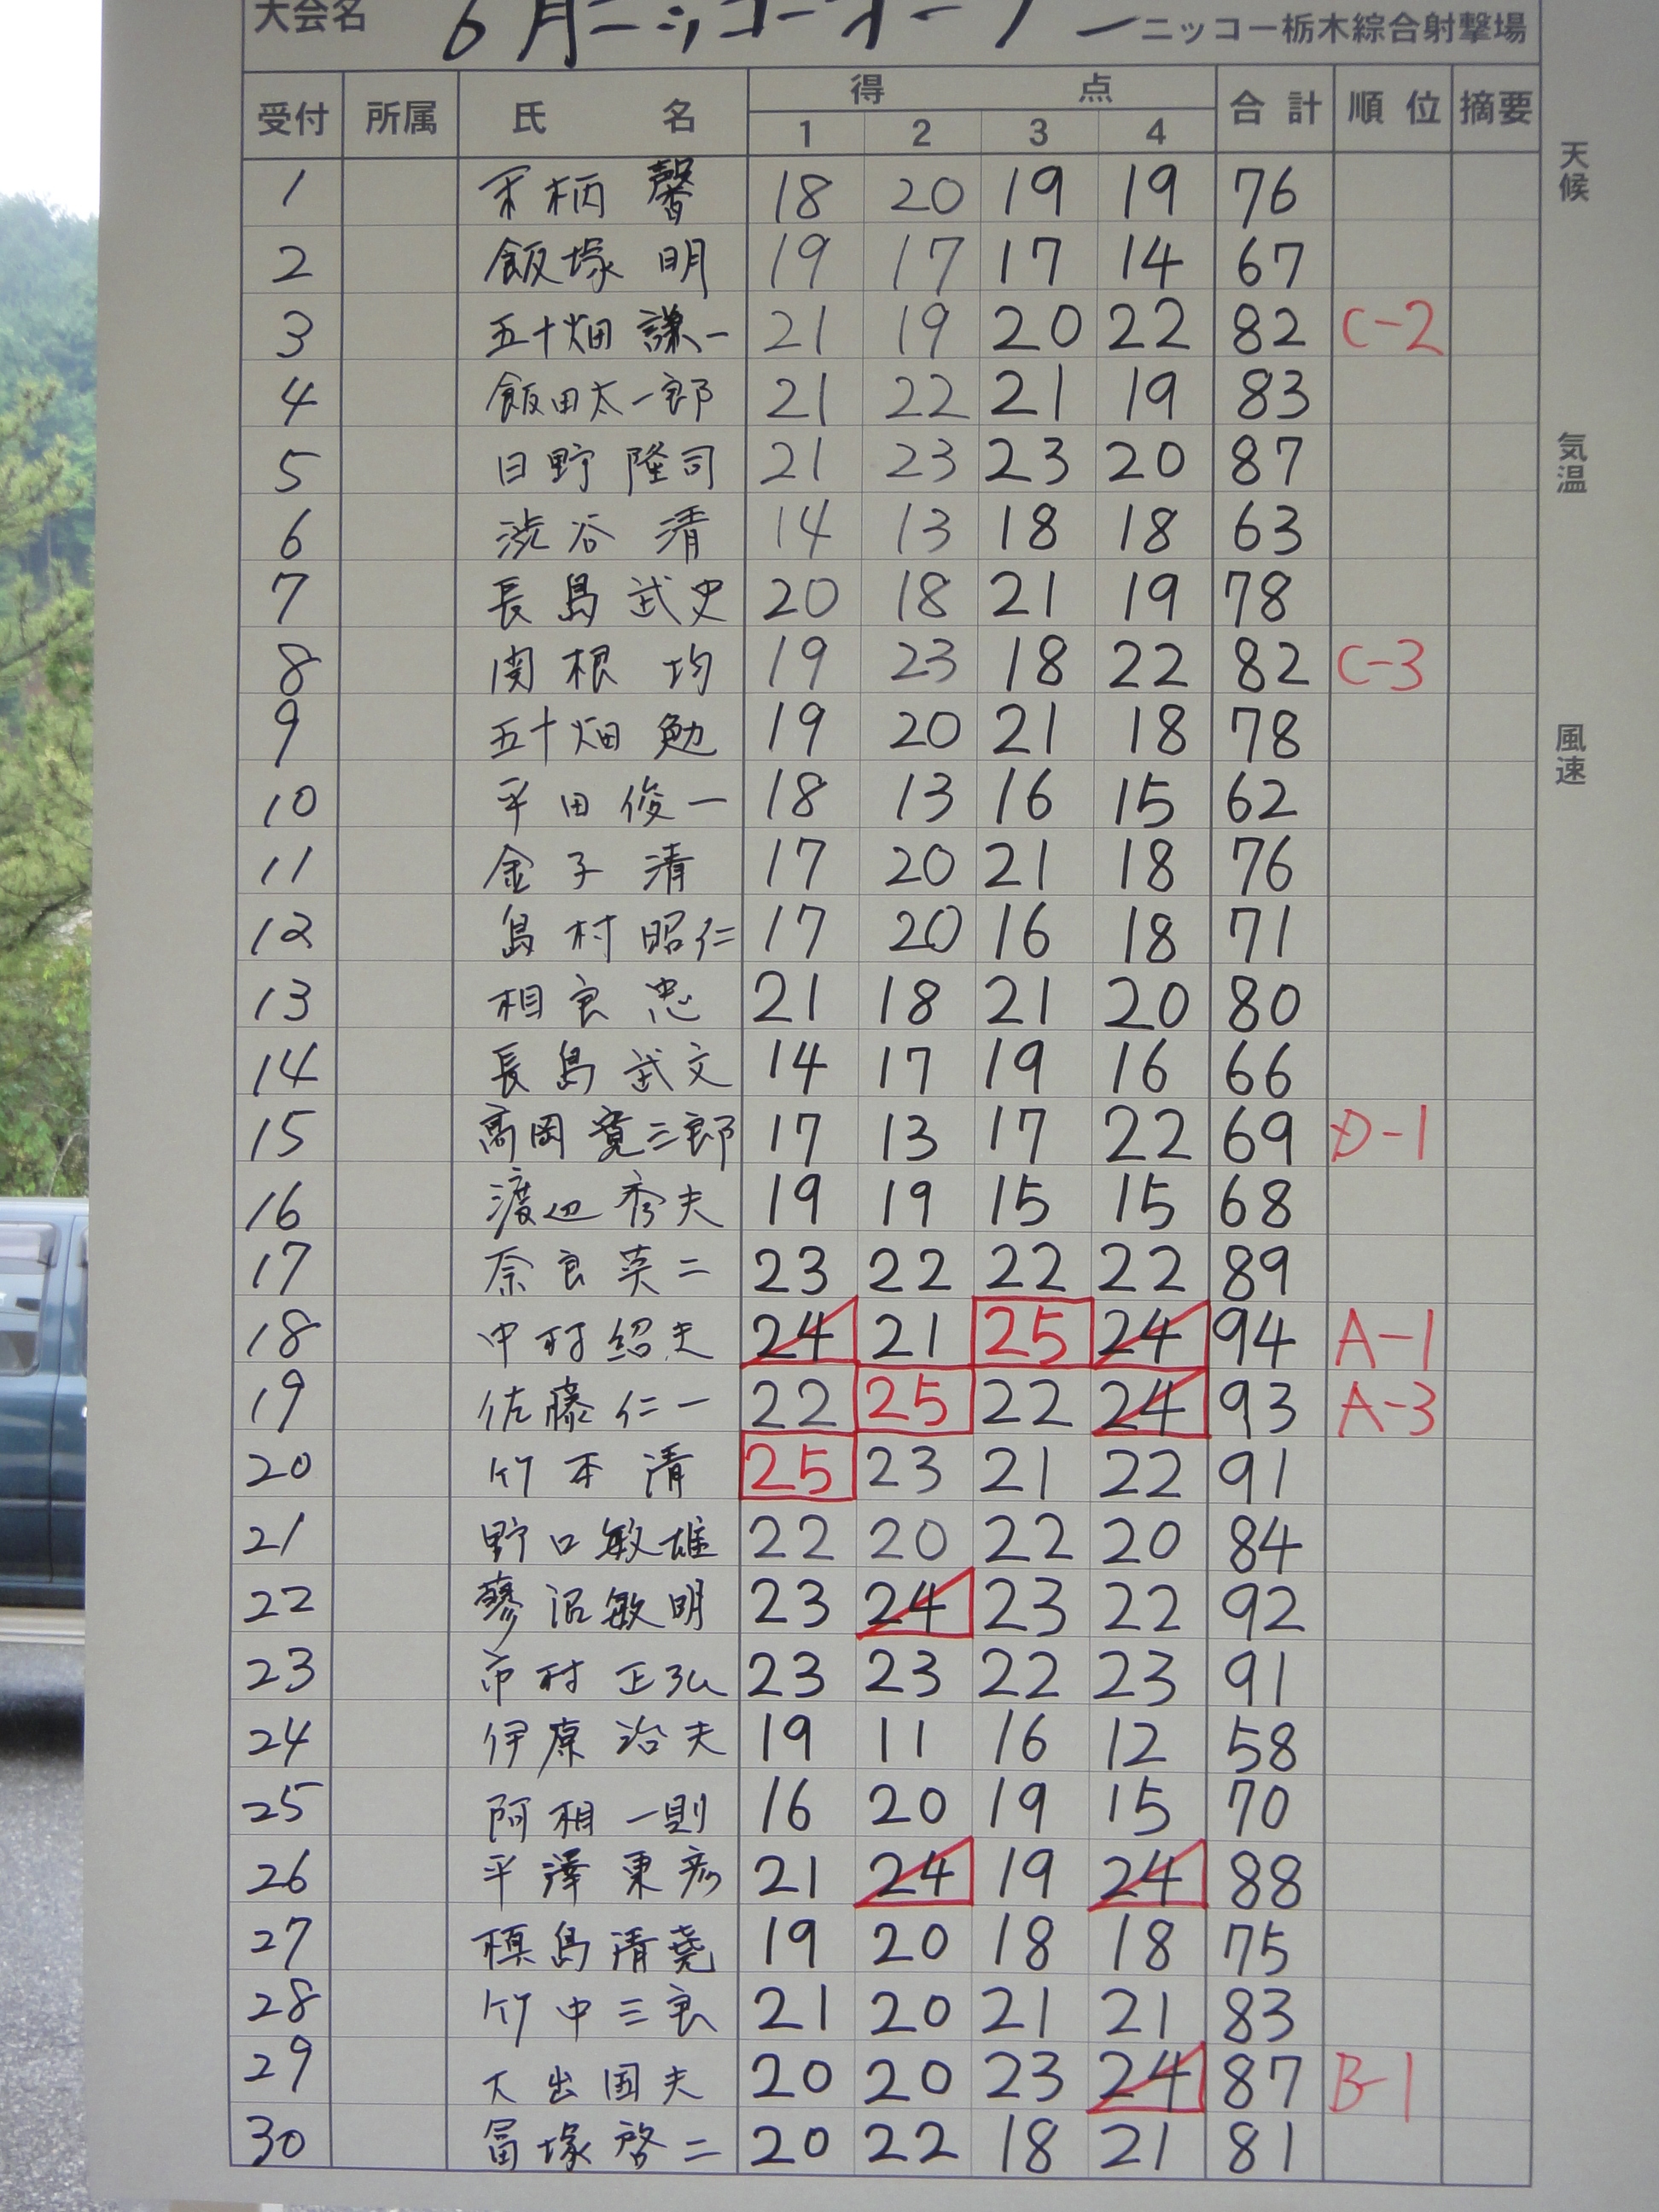 大会名 6月ニッコーオープン ニッコー栃木綜合射撃場
受付 所属 氏名 得点 合計 順位 摘要
1 2 3 4
1 柄 馨 18 20 19 19 76
2 飯塚 明 19 17 17 14 67
3 五十畑 謙一 21 19 20 22 82 C-2
4 飯田太一郎 21 22 21 19 83
5 日野 隆司 21 23 23 20 87
6 渋谷 清 14 13 18 18 63
7 長島 武史 20 18 21 19 78
8 関根 均 19 23 18 22 82 C-3
9 五十畑 勉 19 20 21 18 78
10 平田 俊一 18 13 16 15 62
11 金子 清 17 20 21 18 76
12 島村 昭仁 17 20 16 18 71
13 相良 忠 21 18 21 20 80
14 長島 武文 14 17 19 16 66
15 高岡 寛三郎 17 13 17 22 69 D-1
16 渡辺 秀夫 19 19 15 15 68
17 奈良 英二 23 22 22 22 89
18 中村 紹夫 24 21 25 24 94 A-1
19 佐藤 仁一 22 25 22 24 93 A-3
20 竹本 清 25 23 21 22 91
21 野口 敏雄 22 20 22 20 84
22 蓼沼 敏明 23 24 23 22 92
23 市村 正弘 23 23 22 23 91
24 伊原 治夫 19 11 16 12 58
25 阿相 一則 16 20 19 15 70
26 平澤 東彦 21 24 19 24 88
27 槙島 清尭 19 20 18 18 75
28 竹中 三良 21 20 21 21 83
29 大出 国夫 20 20 23 24 87 B-1
30 冨塚 啓二 20 22 18 21 81
天候
気温
風速